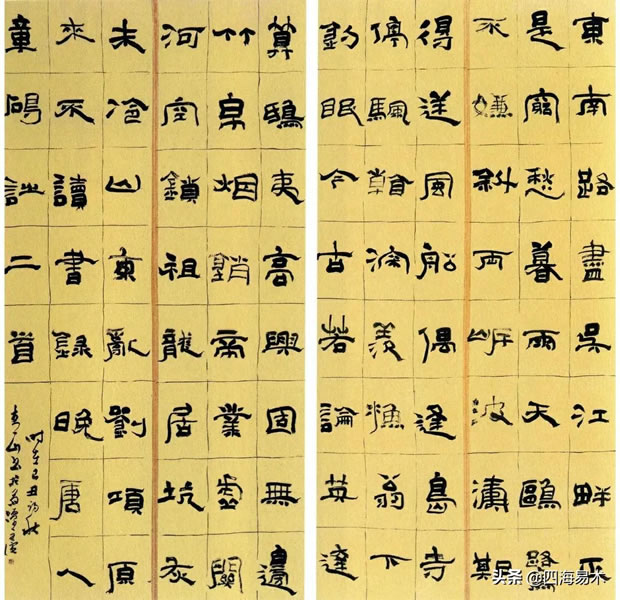 東南路盡吳江畔正
是窮愁暮雨天鷗鷺
不嫌斜兩岸波濤欺
得逆風船偶逢島寺
停颿看深羨漁翁下
釣眠今古若論英達
算鴟夷高興固無邊
竹帛烟銷帝業虛關
河空鎖祖龍居坑灰
未冷山東亂劉項原
來不讀書錄晚唐人
章碣詩二首
時在己丑初秋
头条 @四海易木